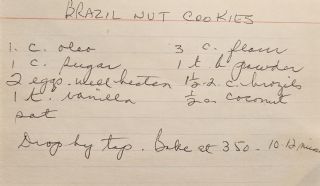 BRAZIL NUT COOKIES
1. c. oleo 3 c. flour
1 c sugar 1 t. b powder
2 eggs. well beaten 1½-2 c. brazils
1 t. vanilla ½ coconut
salt
Drop by tsp. Bake at 350 - 10-12 mins